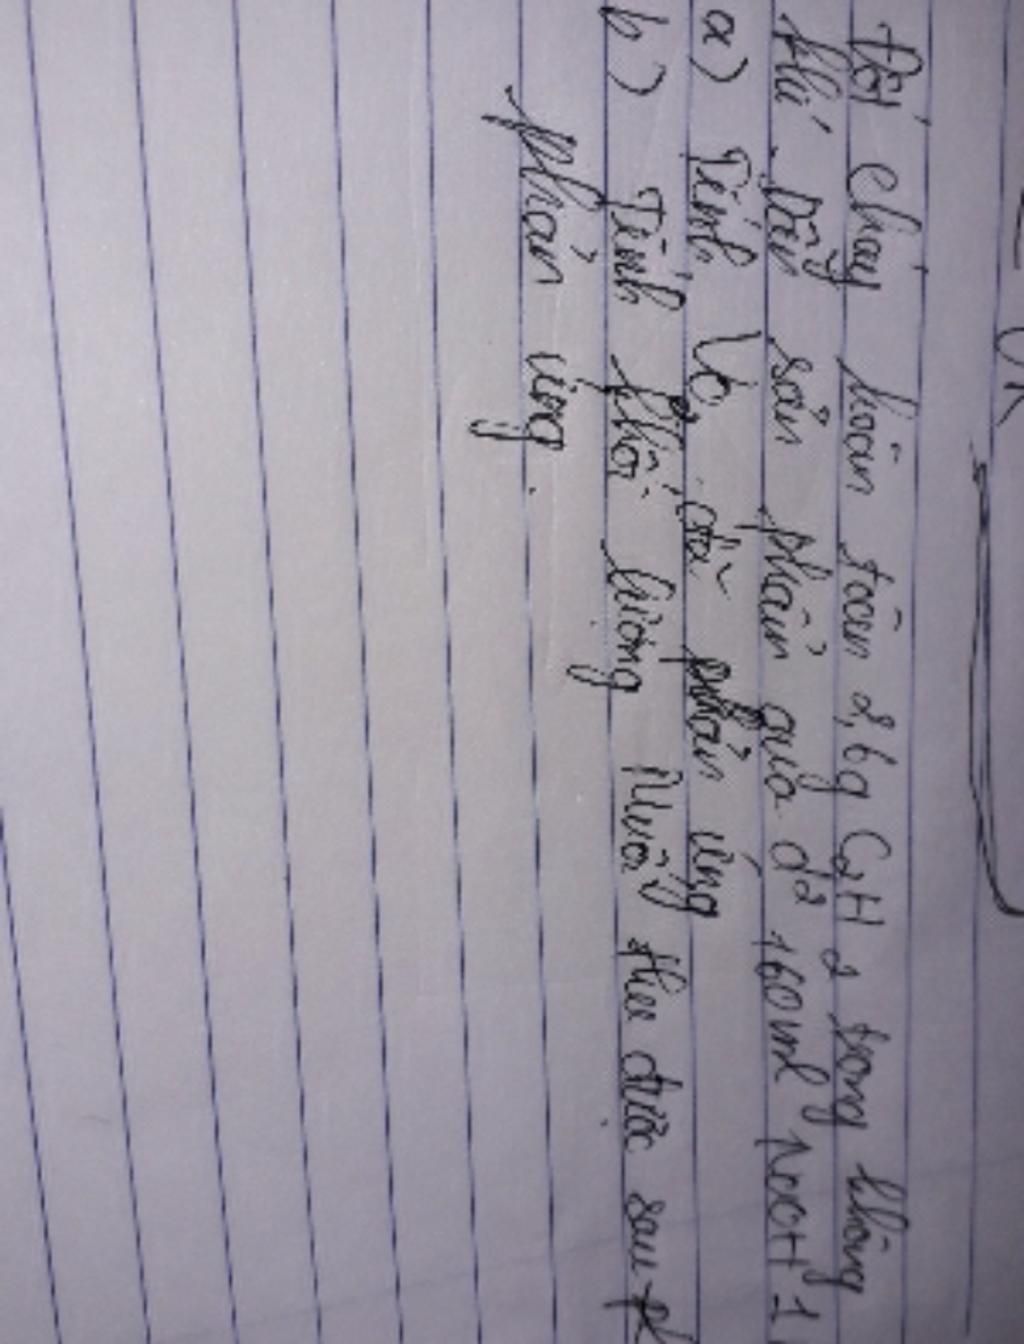 Đốt cháy hoàn toàn 2,6g C2H2 trong không
khí. Dẫn sản phẩm qua d2 160ml NaOH 1
a) Tính Vo đã phản ứng
b) Tính khối lượng Muối thu được sau
phản ứng.